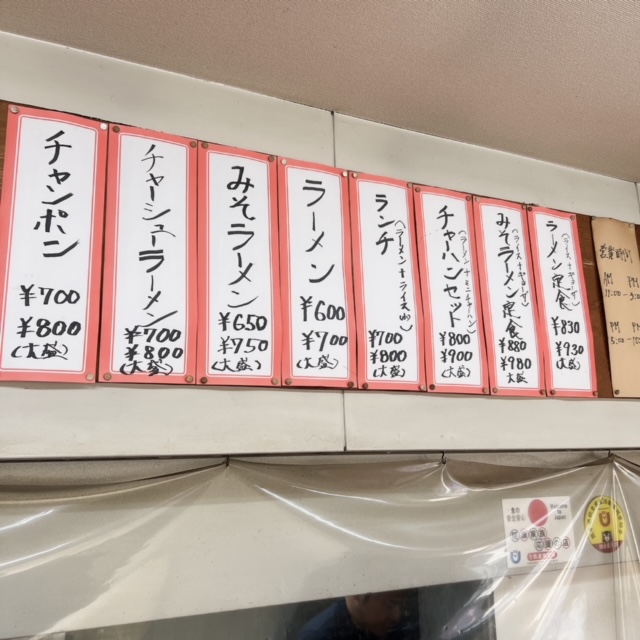 ラーメン定食
(ライス+ギョーザ)
¥830
¥930
(大盛)
みそラーメン定食
(ライス+ギョーザ)
¥880
¥980
大盛
チャーハンセット
(ラーメン+ミニチャーハン)
¥800
¥900
(大盛)
ランチ
(ラーメン+ライス(小))
¥700
¥800
(大盛)
ラーメン
¥600
¥700
(大盛)
みそラーメン
¥650
¥750
(大盛)
チャーシューラーメン
¥700
¥800
(大盛)
チャンポン
¥700
¥800
(大盛)
営業時間
AM
PM
11:00
PM
5:00